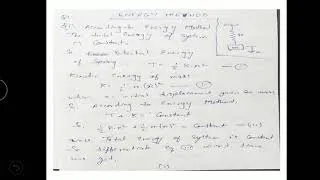 ENERGY METHOD
According to Energy Method
The total Energy of System
is Constant.
So Potential Energy
of Spring T = ½ Kx² — (I)
Kinetic Energy of mass
K = ½ m (ẋ)² — (II)
when x initial displacement given to mass
So According to Energy Method,
T + K = Constant
So ½ Kx² + ½ m(ẋ)² = Constant — (III)
Total Energy of System is Constant
So differentiate Eq (III) w.r.t. time
we get.